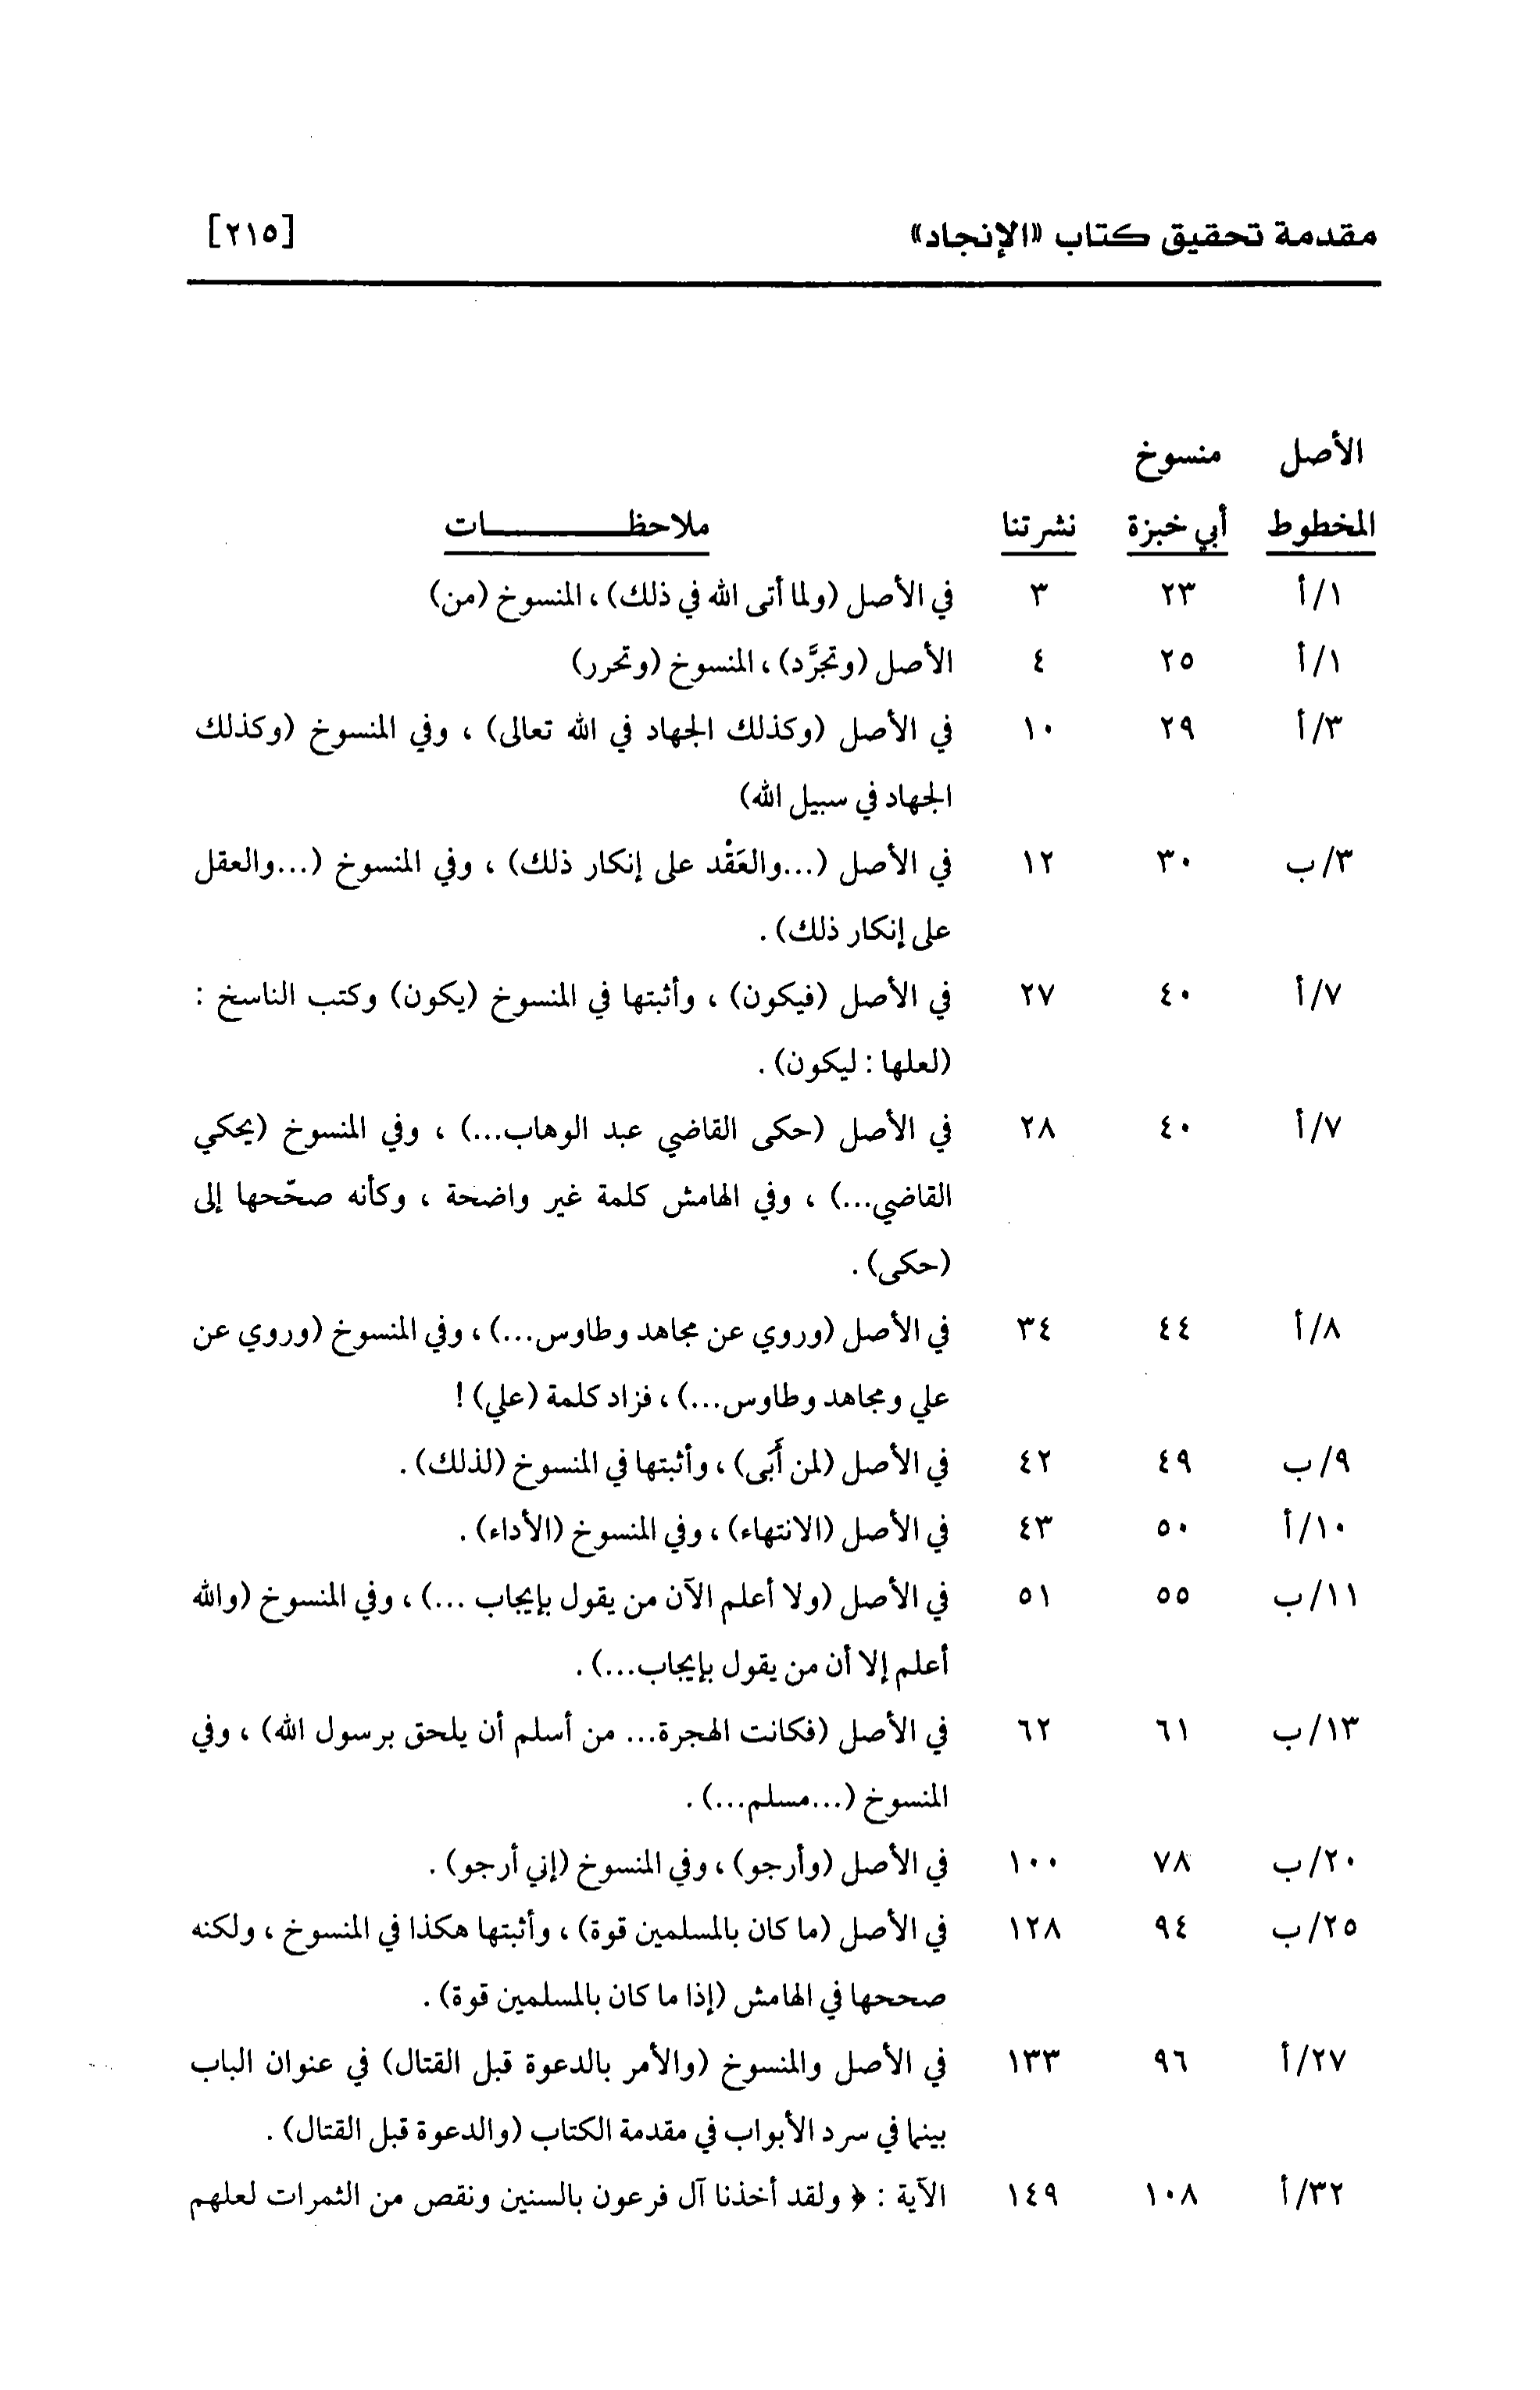 مقدمة تحقيق كتاب «الإنجاد» [٢١٥]
الأصل منسوخ
المخطوط أبي خبزة نشرتنا ملاحظـــــــــات
١/أ ٢٣ ٣ في الأصل (ولما أتى الله في ذلك)، المنسوخ (من)
١/أ ٢٥ ٤ الأصل (وتجرَّد)، المنسوخ (وتحرر)
٣/أ ٢٩ ١٠ في الأصل (وكذلك الجهاد في الله تعالى) ، وفي المنسوخ (وكذلك
الجهاد في سبيل الله)
٣/ب ٣٠ ١٢ في الأصل (...والعَقْد على إنكار ذلك) ، وفي المنسوخ (...والعقل
على إنكار ذلك) .
٧/أ ٤٠ ٢٧ في الأصل (فيكون) ، وأثبتها في المنسوخ (يكون) وكتب الناسخ :
(لعلها : ليكون) .
٧/أ ٤٠ ٢٨ في الأصل (حكى القاضي عبد الوهاب...) ، وفي المنسوخ (يحكي
القاضي...) ، وفي الهامش كلمة غير واضحة ، وكأنه صحّحها إلى
(حكى) .
٨/أ ٤٤ ٣٤ في الأصل (وروي عن مجاهد وطاوس...)، وفي المنسوخ (وروي عن
علي ومجاهد وطاوس...)، فزاد كلمة (علي) !
٩/ب ٤٩ ٤٢ في الأصل (لمن أَبَى)، وأثبتها في المنسوخ (لذلك) .
١٠/أ ٥٠ ٤٣ في الأصل (الانتهاء)، وفي المنسوخ (الأداء) .
١١/ب ٥٥ ٥١ في الأصل (ولا أعلم الآن من يقول بإيجاب ...)، وفي المنسوخ (والله
أعلم إلا أن من يقول بإيجاب...) .
١٣/ب ٦١ ٦٢ في الأصل (فكانت الهجرة... من أسلم أن يلحق برسول الله) ، وفي
المنسوخ (...مسلم...) .
٢٠/ب ٧٨ ١٠٠ في الأصل (وأرجو)، وفي المنسوخ (إني أرجو) .
٢٥/ب ٩٤ ١٢٨ في الأصل (ما كان بالمسلمين قوة)، وأثبتها هكذا في المنسوخ ، ولكنه
صححها في الهامش (إذا ما كان بالمسلمين قوة) .
٢٧/أ ٩٦ ١٣٣ في الأصل والمنسوخ (والأمر بالدعوة قبل القتال) في عنوان الباب
بينما في سرد الأبواب في مقدمة الكتاب (والدعوة قبل القتال) .
٣٢/أ ١٠٨ ١٤٩ الآية : ﴿ ولقد أخذنا آل فرعون بالسنين ونقص من الثمرات لعلهم